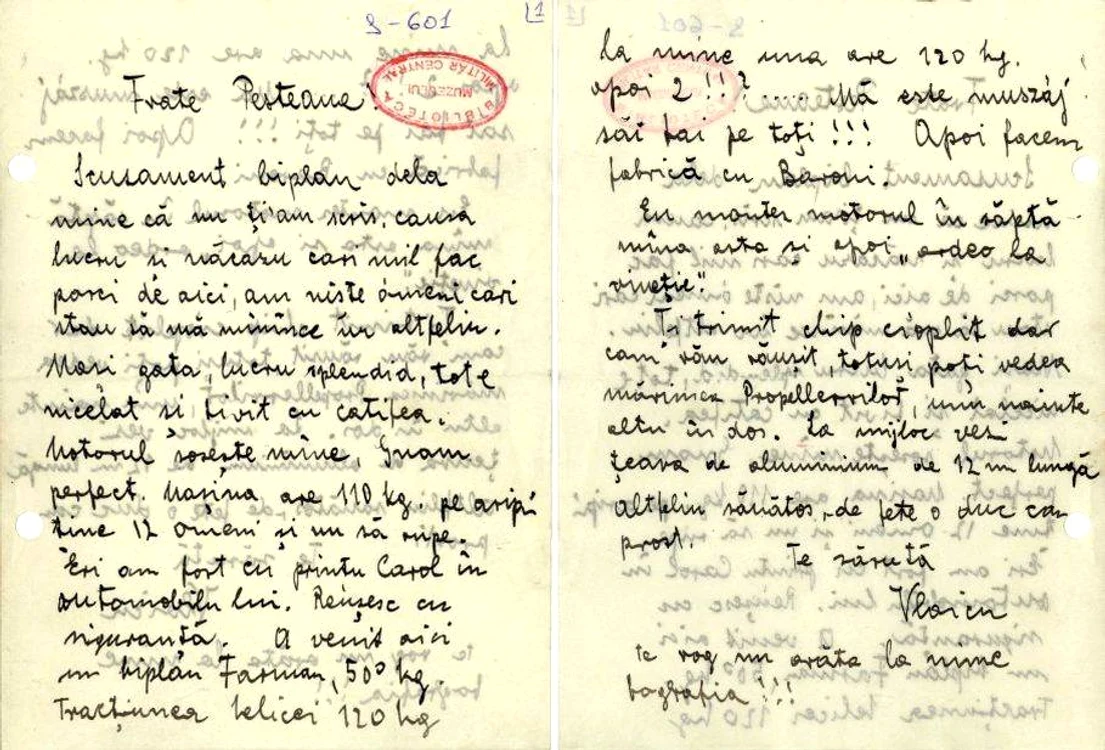 8-601
1
BIBLIOTECA
MUZEULUI
MILITAR CENTRAL
Frate Pesteane!
Scusament biplan dela
mine că nu ți'am scris, causa
lucru si năcazu cari mil fac
porci de aici, am niste ómeni cari
stau să mă minince în altfeliu.
Masi gata, lucru splendid, tot e
nicelat si tivit cu catifea.
Motorul sosește mîne, Gnom
perfect. Masina are 110 kg. pe aripi
tine 12 ómeni și nu să rupe.
Eri am fost cu printu Carol în
automobilu lui. Reușesc cu
siguranță. A venit aici
un biplan Farman, 500 kg.
Tracțiunea helicei 120 kg
la mine una are 120 kg.
apoi 2 !!? ..... Mă este muszáj
săi bai pe toți !!! Apoi facem
fabrică cu Baroni.
Eu montez motorul în săptă
mîna asta și apoi „ardeo la
vinetie".
Ți trimit chip cioplit dar
cam răn răușit, totusi poti vedea
mărimea Propellerrilor, unu nainte
altu în dos. La mijloc vezi
țeava de aluminium de 12 m lungă
altfeliu sănătos, de fete o duc cam
prost.
Te sărută
Vlaicu
te rog nu arăta la nime
fografia !!!